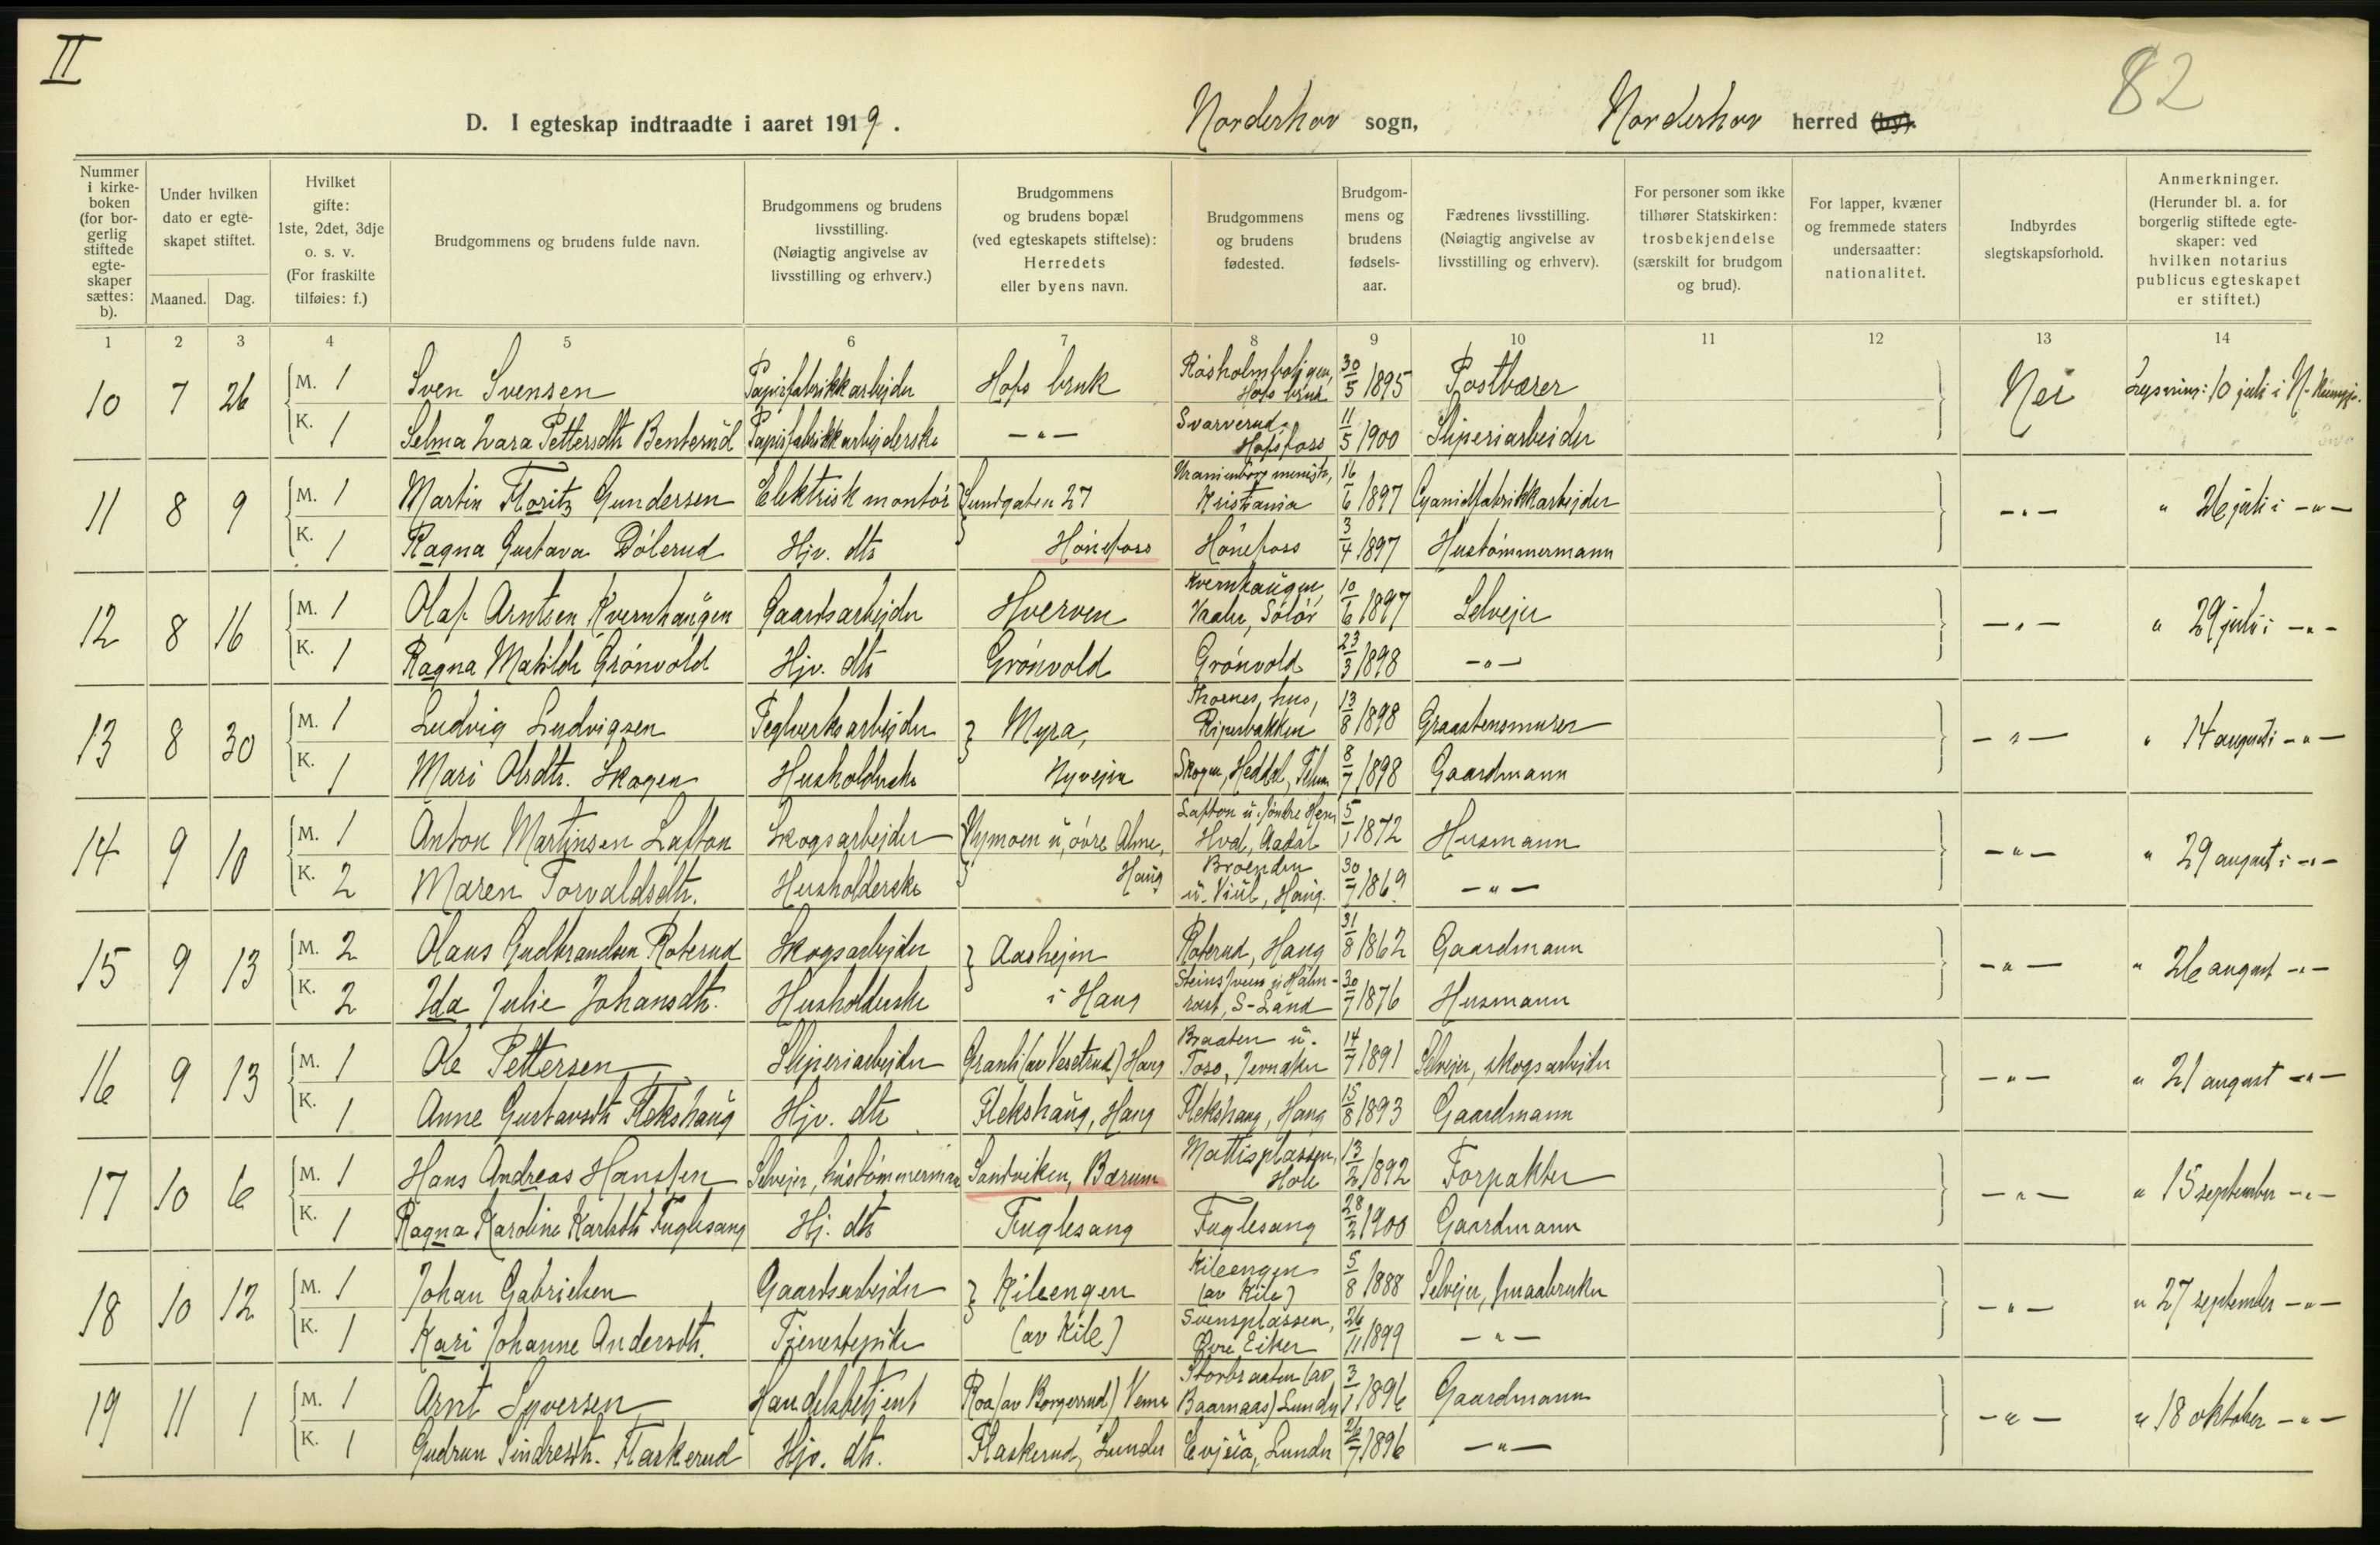 II
82
D. I egteskap indtraadte i aaret 1919. Norderhov sogn, Norderhov herred (by).
Nummer i kirke-boken (for bor-gerlig stiftede egte-skaper sættes: b).
Under hvilken dato er egte-skapet stiftet.
Maaned. Dag.
Hvilket gifte: 1ste, 2det, 3dje o. s. v. (For fraskilte tilføies: f.)
Brudgommens og brudens fulde navn.
Brudgommens og brudens livsstilling. (Nøiagtig angivelse av livsstilling og erhverv.)
Brudgommens og brudens bopæl (ved egteskapets stiftelse): Herredets eller byens navn.
Brudgommens og brudens fødested.
Brudgom-mens og brudens fødsels-aar.
Fædrenes livsstilling. (Nøiagtig angivelse av livsstilling og erhverv).
For personer som ikke tilhører Statskirken: trosbekjendelse (særskilt for brudgom og brud).
For lapper, kvæner og fremmede staters undersaatter: nationalitet.
Indbyrdes slegtskapsforhold.
Anmerkninger. (Herunder bl. a. for borgerlig stiftede egte-skaper: ved hvilken notarius publicus egteskapet er stiftet.)
1 2 3 4 5 6 7 8 9 10 11 12 13 14
10 7 26 M. 1 Sven Svensen Papirfabrikkarbejder Hofs bruk Hofs bruk 30/5 1895 Postbærer Nei Lysning: 10 juli i N.
K. 1 Selma Zara Pettersdtr Benterud Papirfabrikkarbejderske -"- Svarverud, Hofsfoss 11/5 1900 Sliperiarbeider
11 8 9 M. 1 Martin Moritz Gundersen Elektrisk montør Lundgaten 27 Uranienborg menigh., Kristiania 16/6 1897 Cyanidfabrikkarbejder -"- " 26 juli i -"-
K. 1 Ragna Gustava Dølerud Hjv. dtr Hønefoss Hønefoss 3/4 1897 Hustømmermann
12 8 16 M. 1 Olaf Arntsen Kvernhaugen Gaardsarbejder Hverven Kvernhaugen, Vaaler, Solør 10/6 1897 Selvejer -"- " 29 juli i -"-
K. 1 Ragna Matilde Grønvold Hjv. dtr Grønvold Grønvold 23/3 1898 -"-
13 8 30 M. 1 Ludvig Ludvigsen Teglverksarbejder Myra, Thornes hus, Riperbakken 13/8 1898 Graastensmurer -"- " 14 august i -"-
K. 1 Mari Olsdtr. Skogen Husholderske Nyvejen Skogen, Heddal, Telem. 8/7 1898 Gaardmann
14 9 10 M. 1 Anton Martinsen Lafton Skogsarbejder Nymoen u. øvre Alme, Lafton u. søndre Hen, Hval, Aadal 5/1 1872 Husmann -"- " 29 august i -"-
K. 2 Maren Torvaldsdtr. Husholderske Haug Broenden u. Viul, Haug. 30/7 1869. -"-
15 9 13 M. 2 Olaus Gudbrandsen Roterud Skogsarbejder Aasheim Roterud, Haug 31/8 1862 Gaardmann -"- " 26 august -"-
K. 2 Ida Julie Johansdtr. Husholderske i Haug S-Land 30/7 1876 Husmann
16 9 13 M. 1 Ole Pettersen Sliperiarbejder Granli (av Vesetrud) Haug Braaten u. Toso, Jevnaker 14/7 1891 Selvejer, skogsarbejder -"- " 21 august -"-
K. 1 Anne Gustavsdtr Flekshaug Hjv. dtr Flekshaug, Haug Flekshaug, Haug 15/8 1893 Gaardmann
17 10 6 M. 1 Hans Andreas Hanssen Selvejer, hustømmermann Sandviken, Bærum Mattisplassen, Hole 13/2 1892 Forpakter -"- " 15 september -"-
K. 1 Ragna Karoline Karlsdtr Fuglesang Hj. dtr Fuglesang Fuglesang 28/2 1900 Gaardmann
18 10 12 M. 1 Johan Gabrielsen Gaardsarbejder Kileengen Kileengen (av Kile) 5/8 1888 Selvejer, smaabruker -"- " 27 september -"-
K. 1 Kari Johanne Andersdtr. Tjenestepike (av Kile) Svensplassen, Øvre Eiker 26/11 1899 -"-
19 11 1 M. 1 Arnt Syversen Handelsbetjent Roa (av Borgerud) Veme Storbraaten (av Baarnaas) Lunder 3/1 1896 Gaardmann -"- " 18 oktober -"-
K. 1 Gudrun Sindresdtr. Flaskerud Hjv. dtr. Flaskerud, Lunder Evjua, Lunder 26/7 1896 -"-